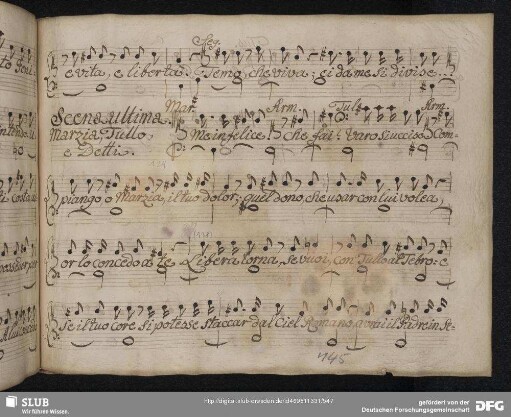 e vita, e libertà. Temo, che viva; ei da me si divise...
Scena ultima. Mar. Arm. Tul. Arm.
Marzia, Tullo, Me infelice che fai? Varo si uccise Com-
e Detti.
piango o Marzia, il tuo dolor; quel dono, che usar con lui volea,
or lo concedo a te. Libera torna, se vuoi, con Tullo al Tebro: e
se il tuo core si potesse staccar dal Ciel Romano, avrai il Padre in Se-
745
SLUB
Wir führen Wissen.
gefördert von der
Deutschen Forschungsgemeinschaft
DFG